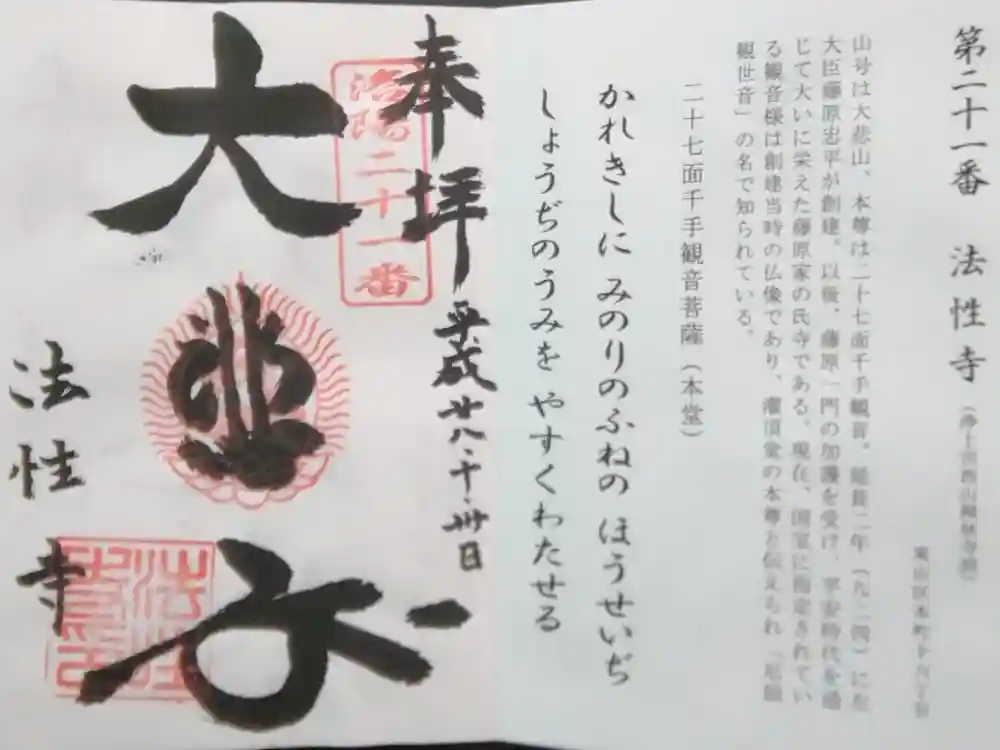 第二十一番 法性寺
（浄土宗西山禅林寺派）
東山区本町十六丁目
山号は大悲山、本尊は二十七面千手観音。延長二年（九二四）に左
大臣藤原忠平が創建。以後、藤原一門の加護を受け、平安時代を通
じて大いに栄えた藤原家の氏寺である。現在、国宝に指定されてい
る観音様は創建当時の仏像であり、灌頂堂の本尊と伝えられ「厄除
観世音」の名で知られている。
二十七面千手観音菩薩（本堂）
かれきしに みのりのふねの ほうせいぢ
しょうぢのうみを やすくわたせる
奉拝 平成廿八・十・卅日
洛陽二十一番
大悲
法性寺